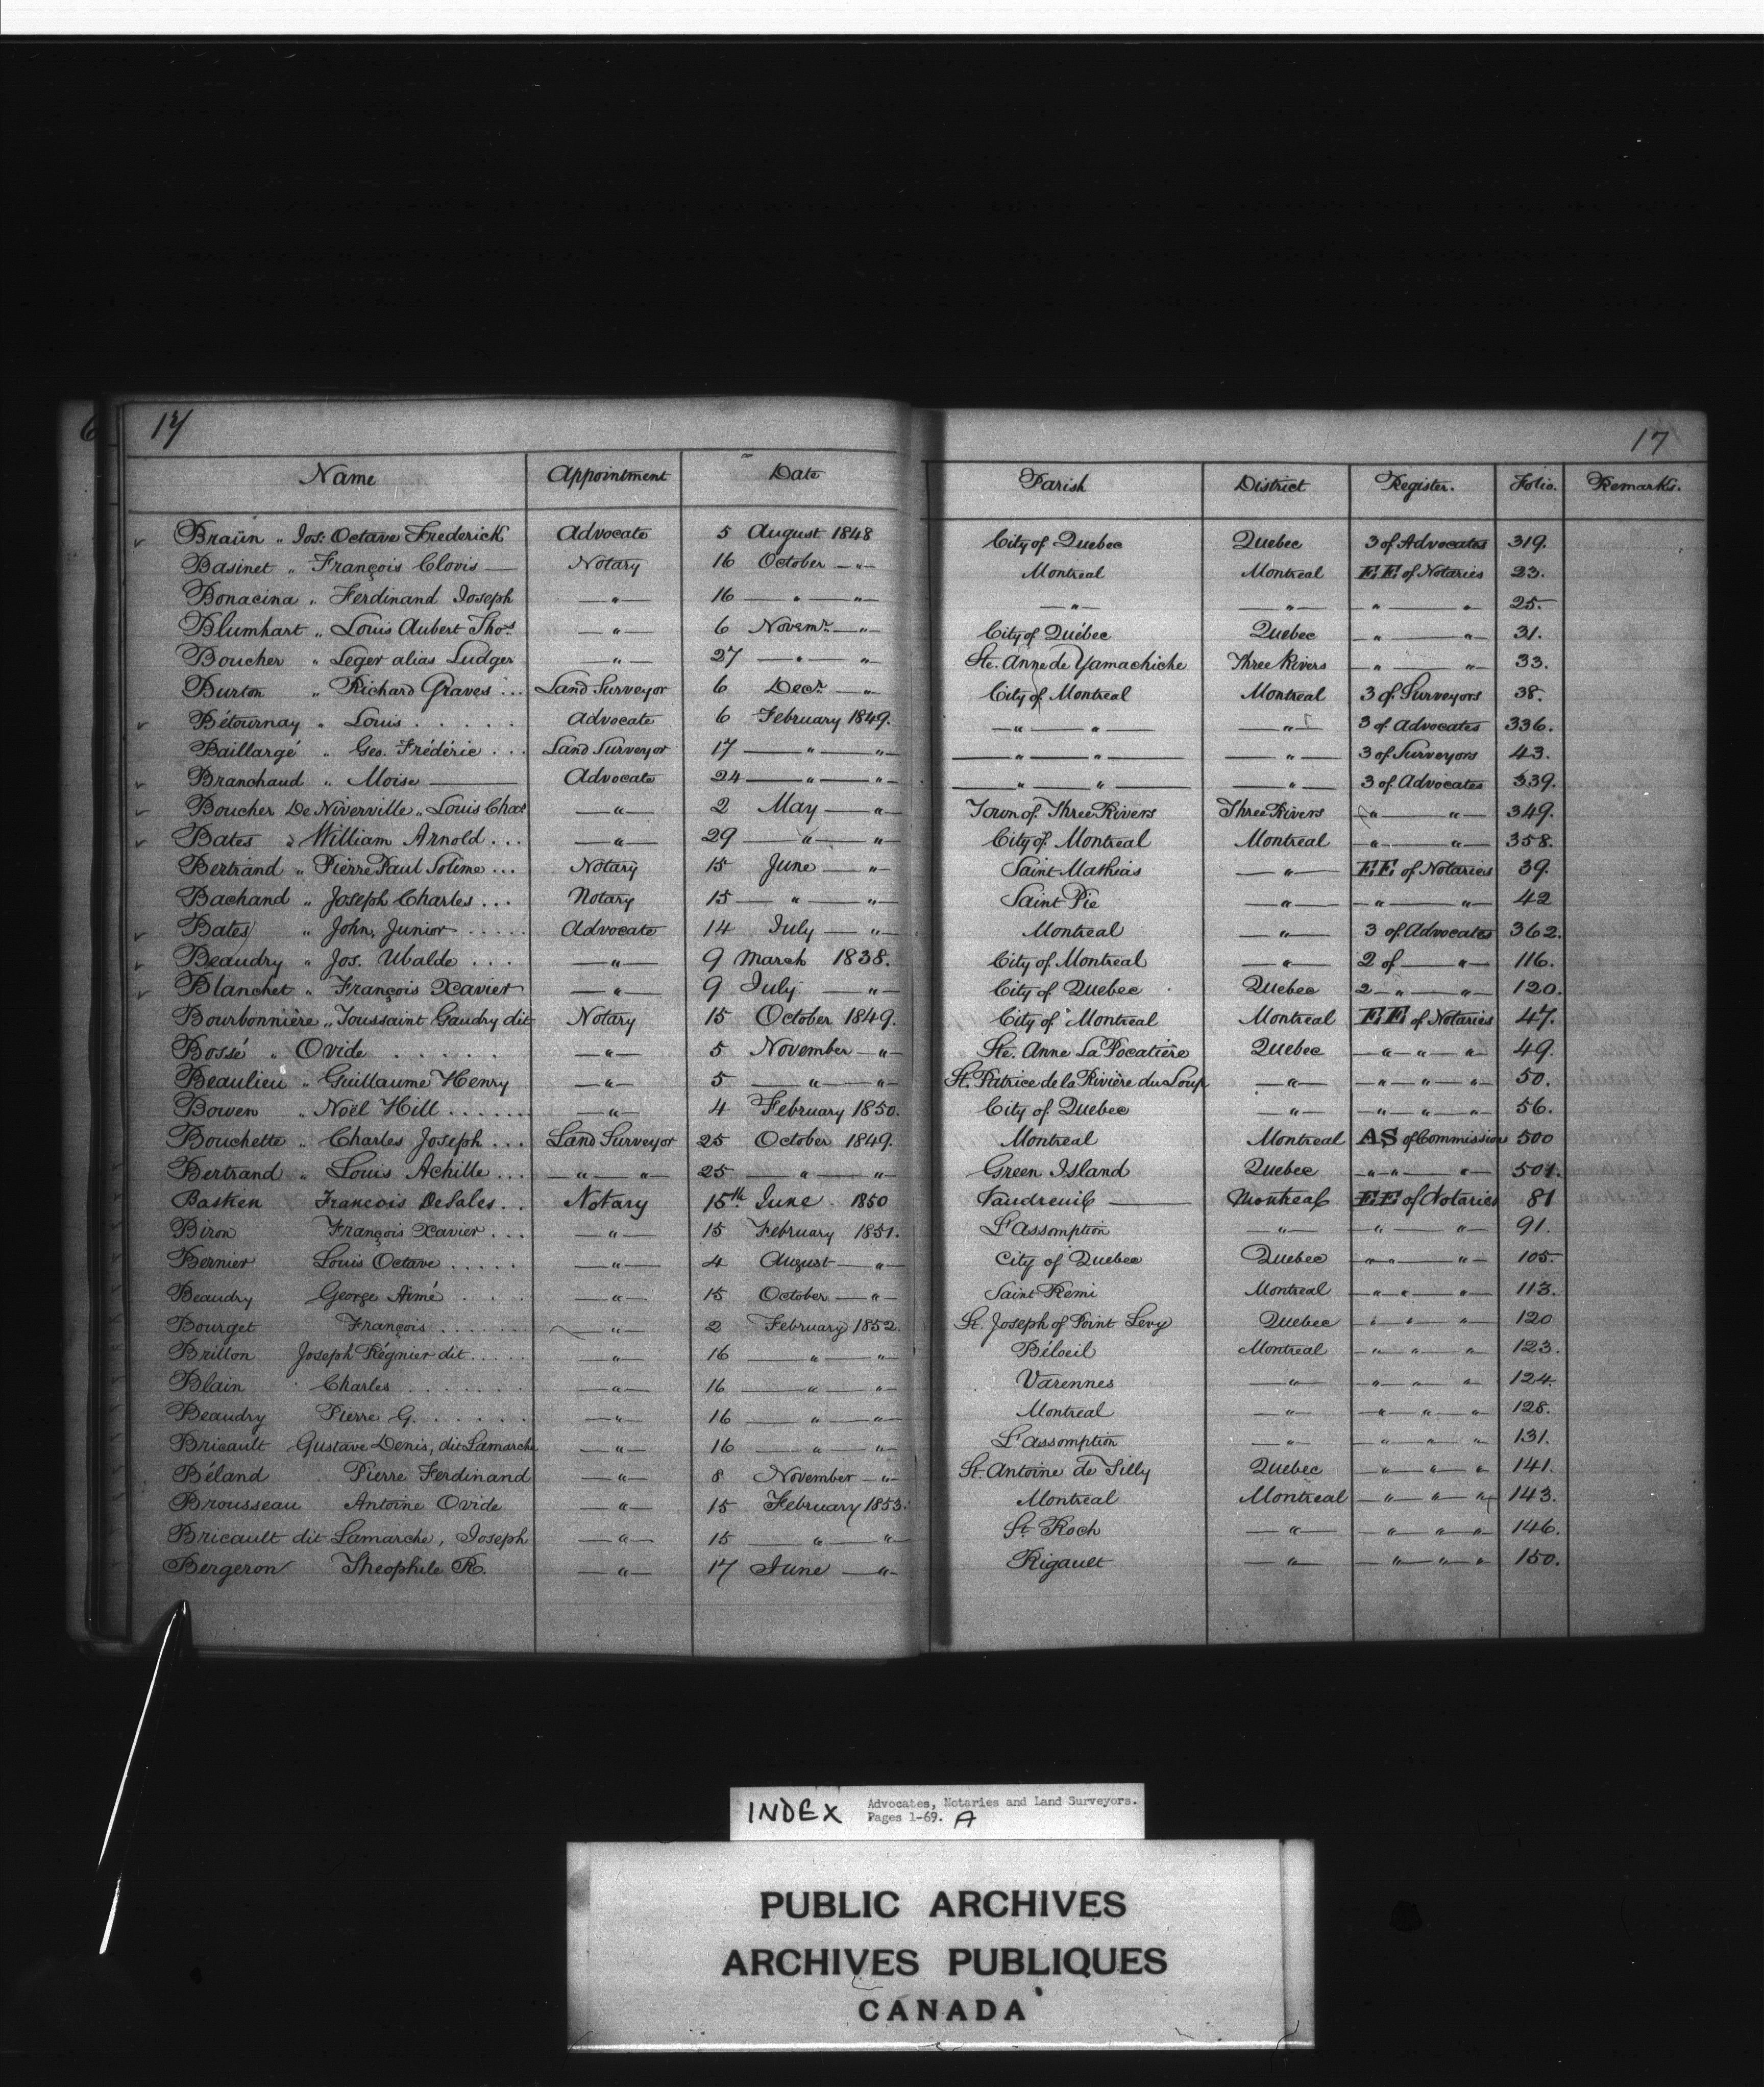 17 17
Name Appointment Date Parish District Register. Folio. Remarks.
Braün „ Jos: Octave Frederick Advocate 5 August 1848 City of Quebec Quebec 3 of Advocates 319.
Basinet „ François Clovis — Notary 16 October — „ — Montreal Montreal EE of Notaries 23.
Bonacina „ Ferdinand Joseph — „ — 16 — „ — „ — — „ — — „ — „ — „ 25.
Blumhart „ Louis Aubert Thos. — „ — 6 Novemr. — „ — City of Québec Quebec „ — „ 31.
Boucher „ Leger alias Ludger — „ — 27 — „ — „ — Ste. Anne de Yamachiche Three Rivers „ — „ 33.
Burton „ Richard Graves ... Land Surveyor 6 Decr. — „ — City of Montreal Montreal 3 of Surveyors 38.
Bétournay „ Louis ..... Advocate 6 February 1849. — „ — „ — — „ — 3 of Advocates 336.
Baillargé „ Geo. Frédéric ... Land Surveyor 17 — „ — „ — — „ — „ — — „ — 3 of Surveyors 43.
Branchaud „ Moise — Advocate 24 — „ — „ — — „ — „ — — „ — 3 of Advocates 339.
Boucher De Niverville „ Louis Chas — „ — 2 May — „ — Town of Three Rivers Three Rivers „ — „ — 349.
Bates „ William Arnold ... — „ — 29 — „ — „ — City of Montreal Montreal — „ — „ — 358.
Bertrand „ Pierre Paul Solime ... Notary 15 June — „ — Saint Mathias — „ — EE of Notaries 39.
Bachand „ Joseph Charles ... Notary 15 — „ — „ — Saint Pie — „ — — „ — „ — 42
Bates „ John, Junior ..... Advocate 14 July — „ — Montreal — „ — 3 of Advocates 362.
Beaudry „ Jos. Ubalde ... — „ — 9 March 1838. City of Montreal — „ — 2 of — „ — 116.
Blanchet „ François Xavier — „ — 9 July — „ — City of Quebec Quebec 2 — „ — „ — 120.
Bourbonnière „ Toussaint Gaudry dit Notary 15 October 1849. City of Montreal Montreal EE of Notaries 47.
Bossé „ Ovide ..... — „ — 5 November — „ — Ste. Anne La Pocatière Quebec — „ — „ — „ 49.
Beaulieu „ Guillaume Henry — „ — 5 — „ — „ — St. Patrice de la Rivière du Loup — „ — — „ — „ — „ 50.
Bowen „ Noël Hill ...... — „ — 4 February 1850. City of Quebec — „ — — „ — „ — „ 56.
Bouchette „ Charles Joseph ... Land Surveyor 25 October 1849. Montreal Montreal AS of Commission 500
Bertrand „ Louis Achille ... — „ — „ — 25 — „ — „ — Green Island Quebec — „ „ — „ — 501.
Basken Francois DeSales .. Notary 15th. June 1850 Vaudreuil — Montreal EE of Notaries 81
Biron François Xavier ... — „ — 15 February 1851. L'assomption — „ — — „ — „ — 91.
Bernier Louis Octave ..... — „ — 4 August — „ — City of Quebec Quebec — „ „ — „ — 105.
Beaudry George Aimé ... — „ — 15 October — „ — Saint Remi Montreal — „ — „ — „ — 113.
Bourget François ...... — „ — 2 February 1852. St. Joseph of Point Levy Quebec — „ — „ — „ 120
Brillon Joseph Régnier dit ..... — „ — 16 — „ — „ — Béloeil Montreal — „ — „ — „ 123.
Blain Charles ....... — „ — 16 — „ — „ — Varennes — „ — — „ — „ — „ 124.
Beaudry Pierre G. ...... — „ — 16 — „ — „ — Montreal — „ — — „ — „ — „ 128.
Bricault Gustave Denis, dit Lamarche — „ — 16 — „ — „ — L'assomption — „ — — „ — „ — „ 131.
Béland Pierre Ferdinand — „ — 8 November — „ — St. Antoine de Tilly Quebec — „ — „ — „ 141.
Brousseau Antoine Ovide — „ — 15 February 1853. Montreal Montreal — „ — „ — „ 143.
Bricault dit Lamarche, Joseph — „ — 15 — „ — „ — St. Roch — „ — — „ — „ — „ 146.
Bergeron Theophile R. — „ — 17 June — „ — Rigault — „ — — „ — „ — „ 150.
INDEX Advocates, Notaries and Land Surveyors.
Pages 1-69. A
PUBLIC ARCHIVES
ARCHIVES PUBLIQUES
CANADA